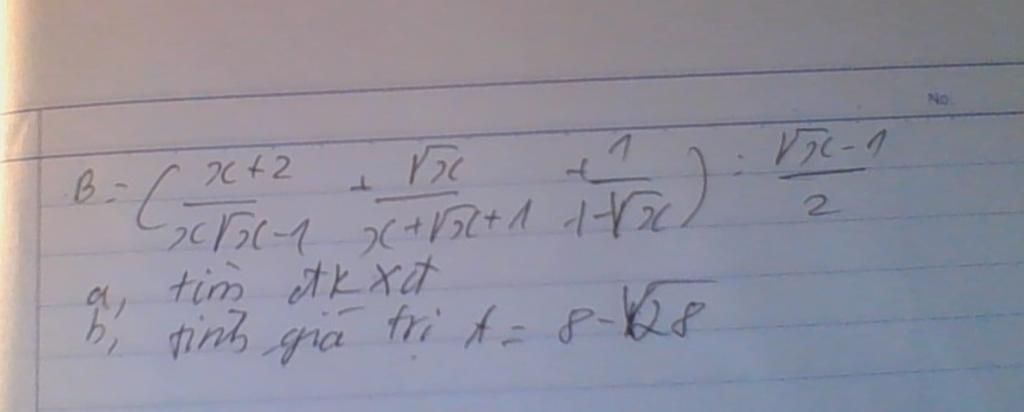 No.
B = ( \frac{x+2}{x\sqrt{x}-1} + \frac{\sqrt{x}}{x+\sqrt{x}+1} + \frac{1}{1-\sqrt{x}} ) : \frac{\sqrt{x}-1}{2}
a, tìm đk xđ
b, tính giá trị x = 8-\sqrt{28}